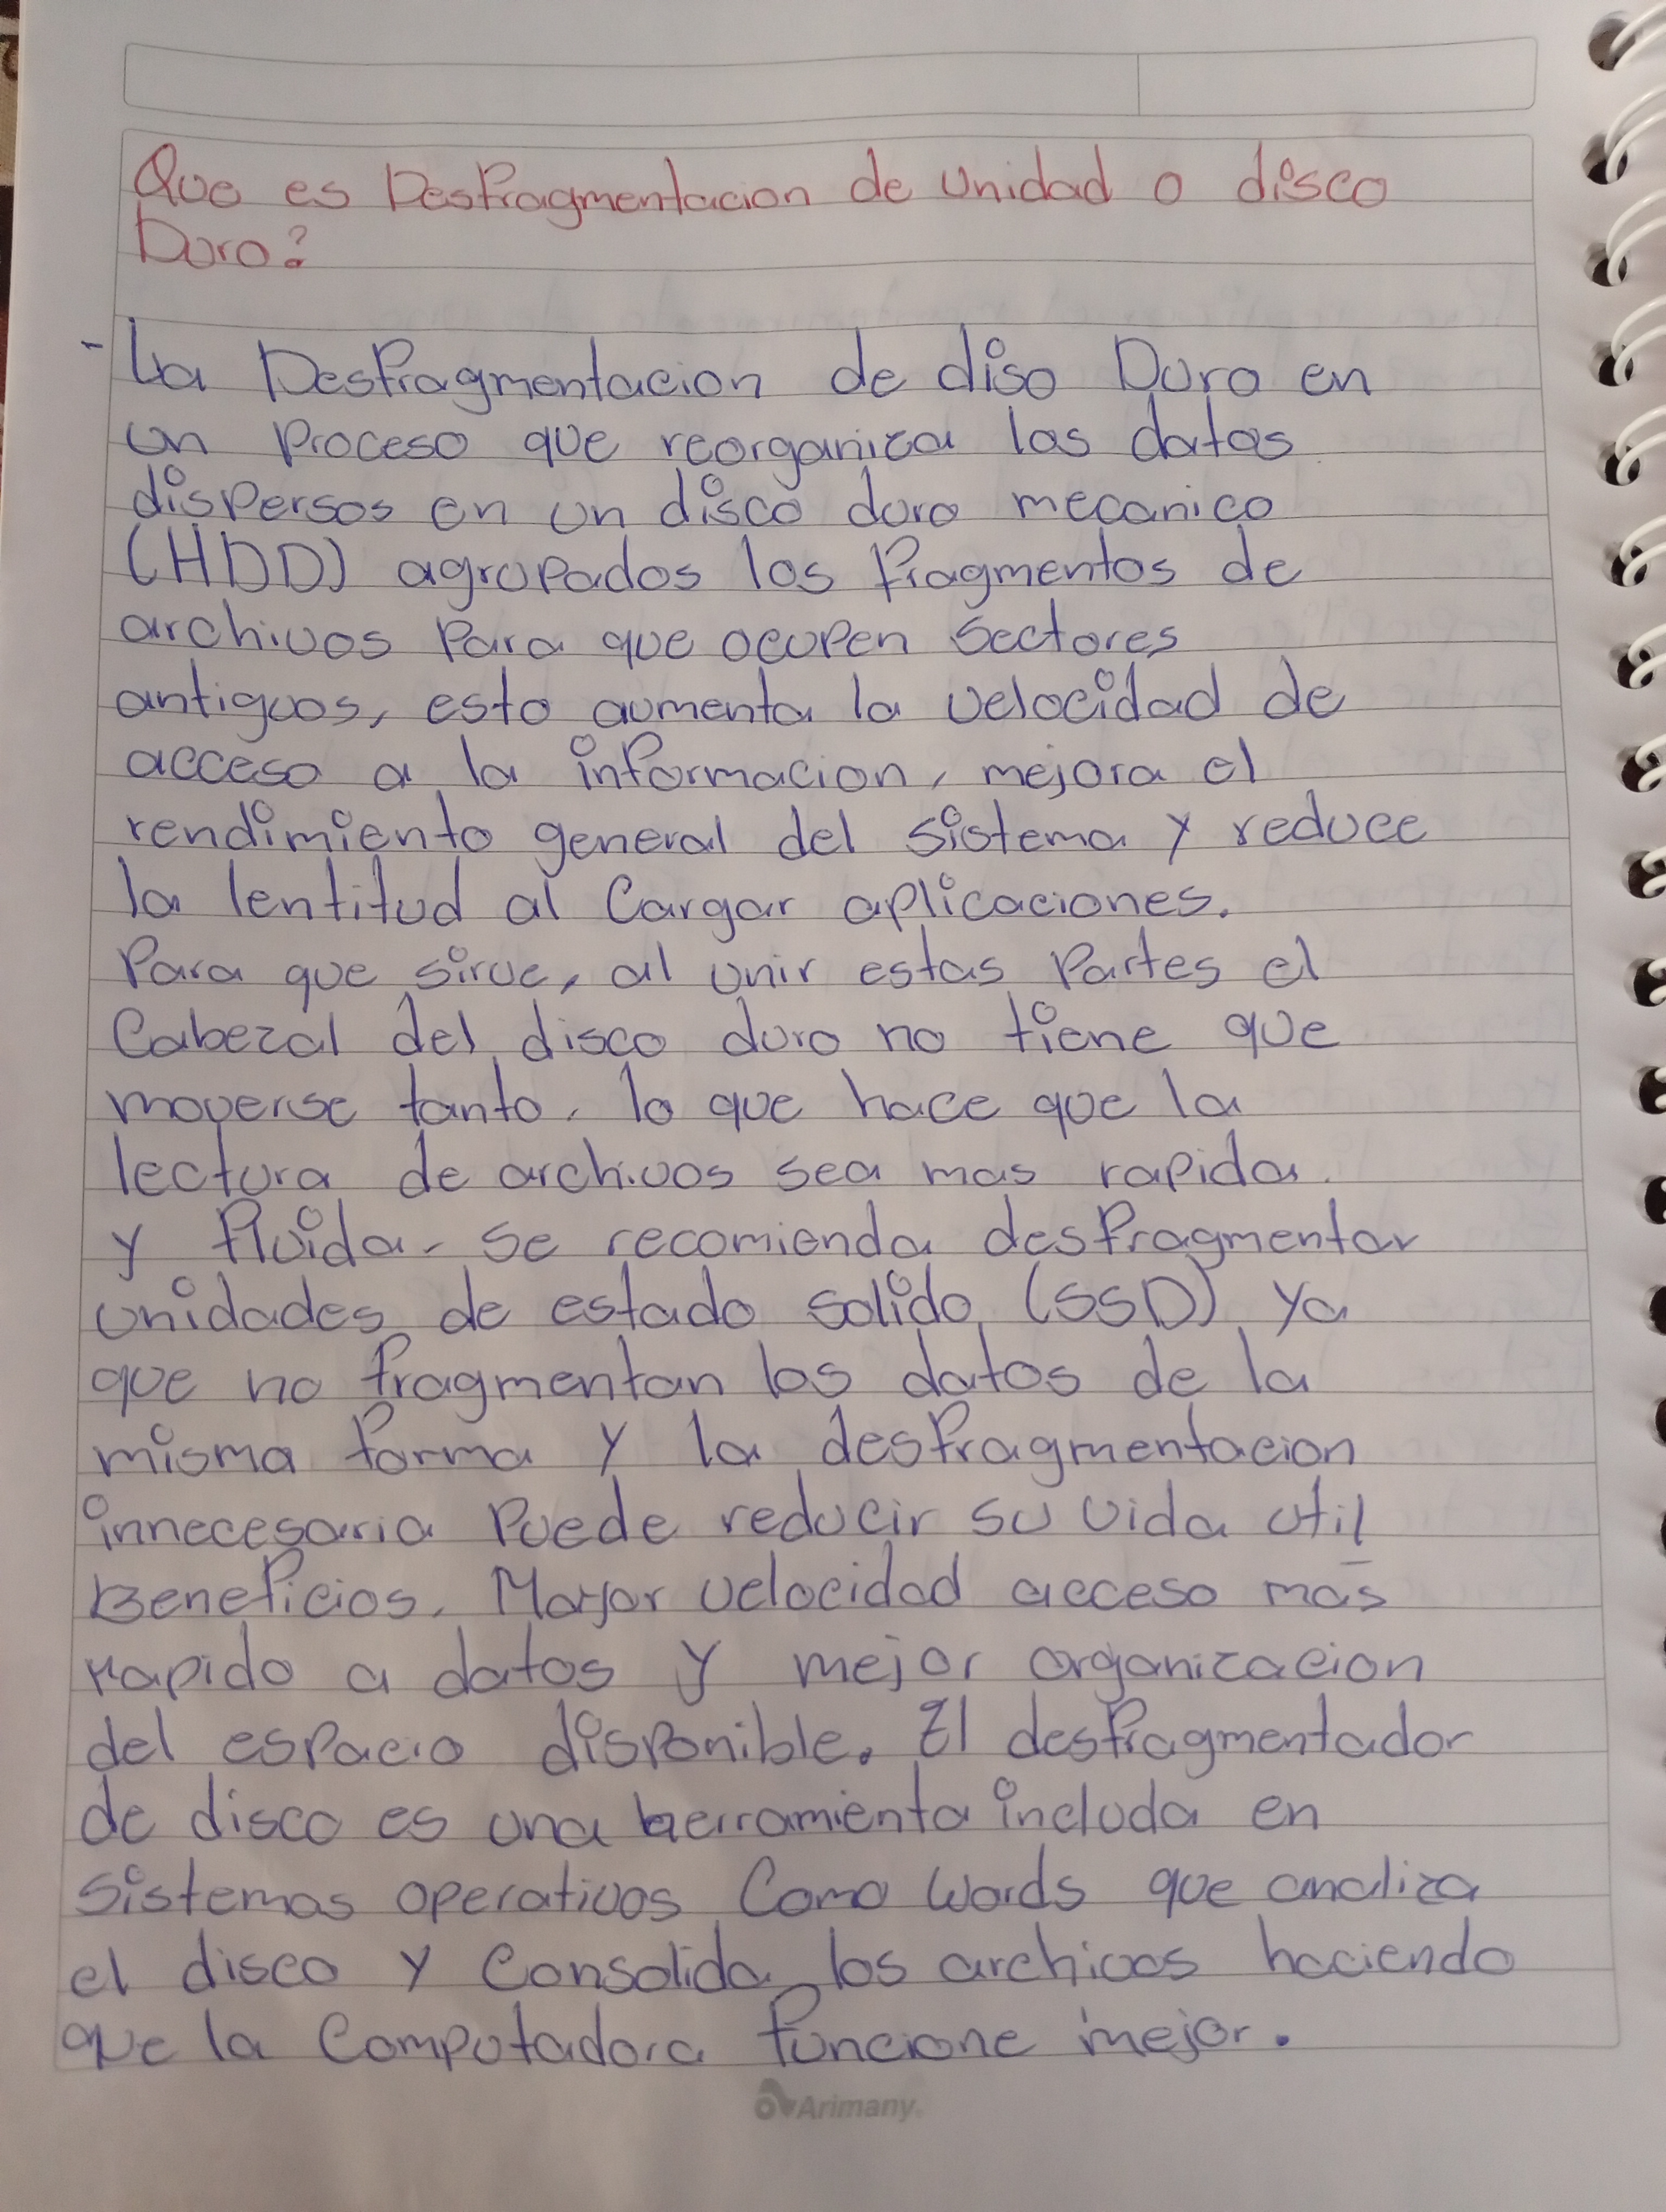 Que es Desfragmentacion de unidad o disco
Duro?
- La Desfragmentacion de diso Duro en
un Proceso que reorganiza los datos
dispersos en un disco duro mecanico
(HDD) agrupados los fragmentos de
archivos Para que ocupen Sectores
antiguos, esto aumenta la velocidad de
acceso a la informacion, mejora el
rendimiento general del sistema y reduce
la lentitud al Cargar aplicaciones.
Para que sirve, al unir estas Partes el
Cabezal del disco duro no tiene que
moverse tanto, lo que hace que la
lectura de archivos sea mas rapida.
y fluida. se recomienda desfragmentar
unidades de estado solido (SSD) ya
que no fragmentan los datos de la
misma forma y la desfragmentacion
innecesaria Puede reducir su vida util
Beneficios. Mayor velocidad acceso mas
rapido a datos y mejor organizacion
del espacio disponible. El desfragmentador
de disco es una herramienta includa en
Sistemas operativos Como Words que analiza
el disco y Consolida los archivos haciendo
que la Computadora funcione mejor.
Arimany.